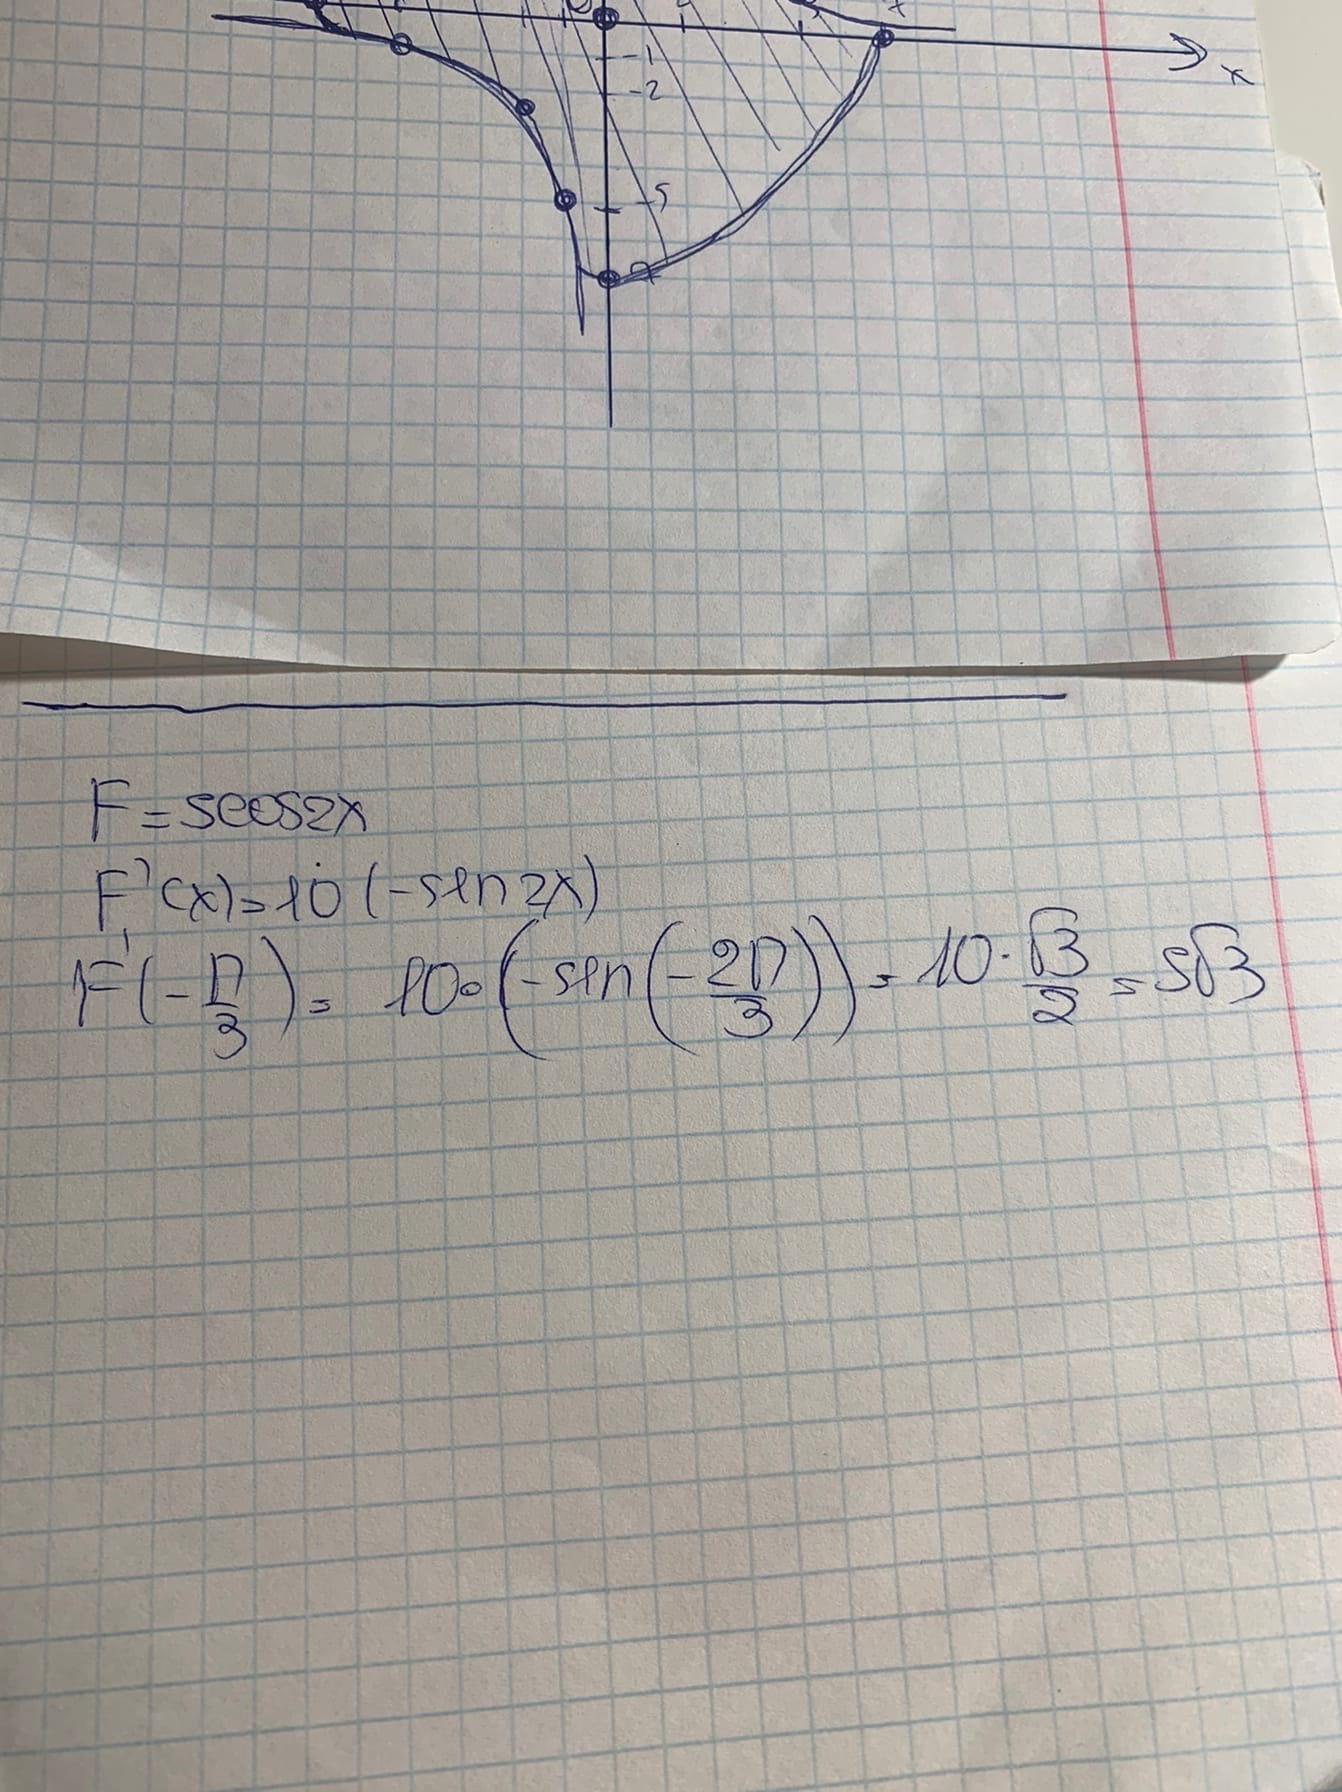 -1
-2
-5
-7
x
F = 5cos2x
F'(x) = 10 (-sin 2x)
F'(-π/3) = 10·(-sin(-2π/3)) = 10·√3/2 = 5√3